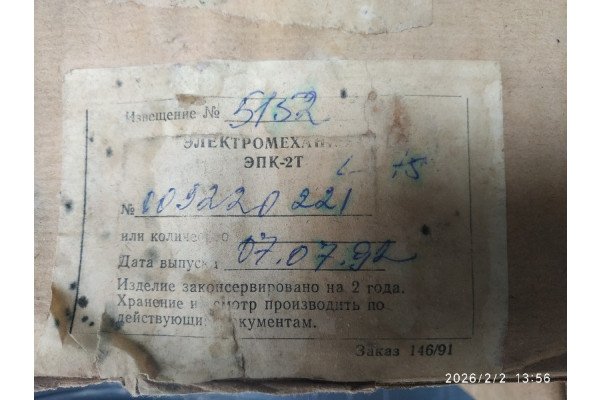 Извещение № 5152
ЭЛЕКТРОМЕХАНИ
ЭПК-2Т
№ 109220221
или количество
Дата выпуска 07.07.92
Изделие законсервировано на 2 года.
Хранение и осмотр производить по
действующим документам.
Заказ 146/91
2026/2/2 13:56